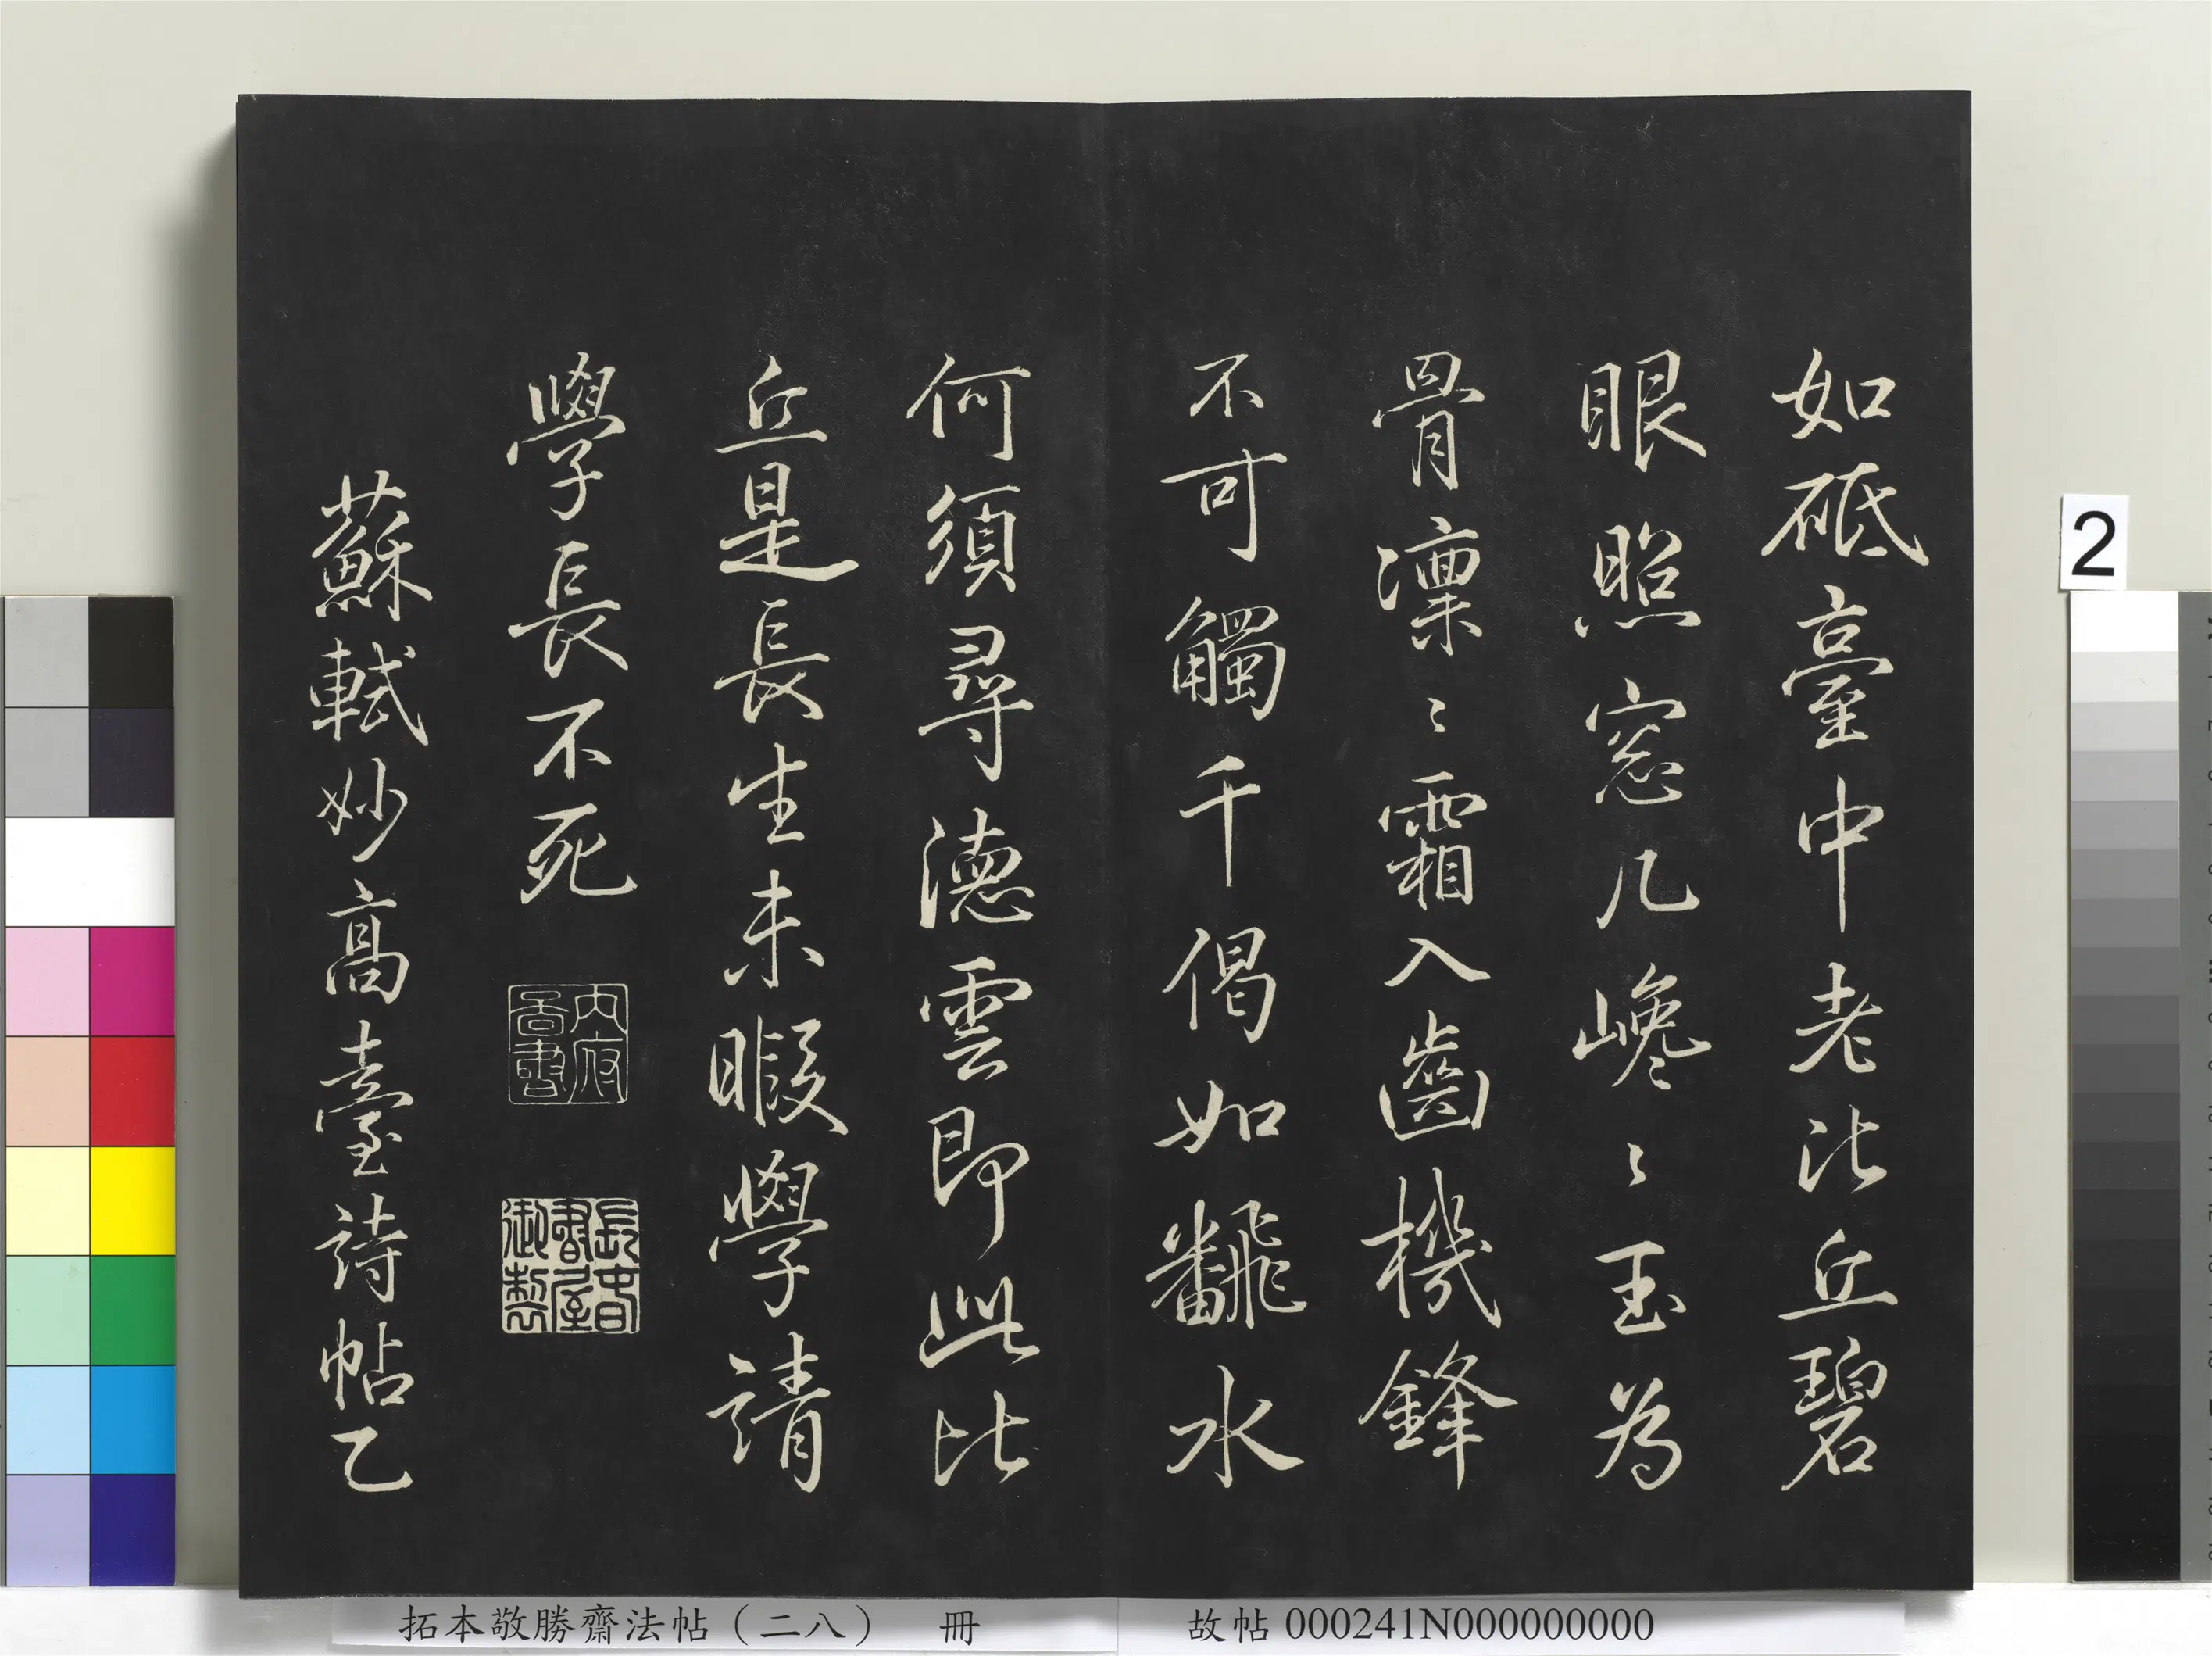 如砥臺中老比丘碧
眼照窓几巉〻玉為
骨凜〻霜入齒機鋒
不可觸千偈如飜水
何須尋德雲即此比
丘是長生未暇學請
學長不死
內府圖書
長春書屋御製
蘇軾妙高臺詩帖乙
2
拓本敬勝齋法帖（二八） 冊
故帖 000241N000000000